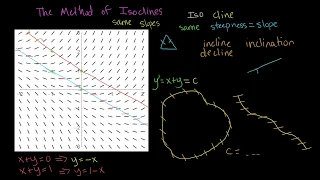 The Method of Isoclines
same slopes
Iso cline
same steepness = slope
incline inclination
decline
y' = x+y = C
C = ---
x+y=0 => y=-x
x+y=1 => y=1-x